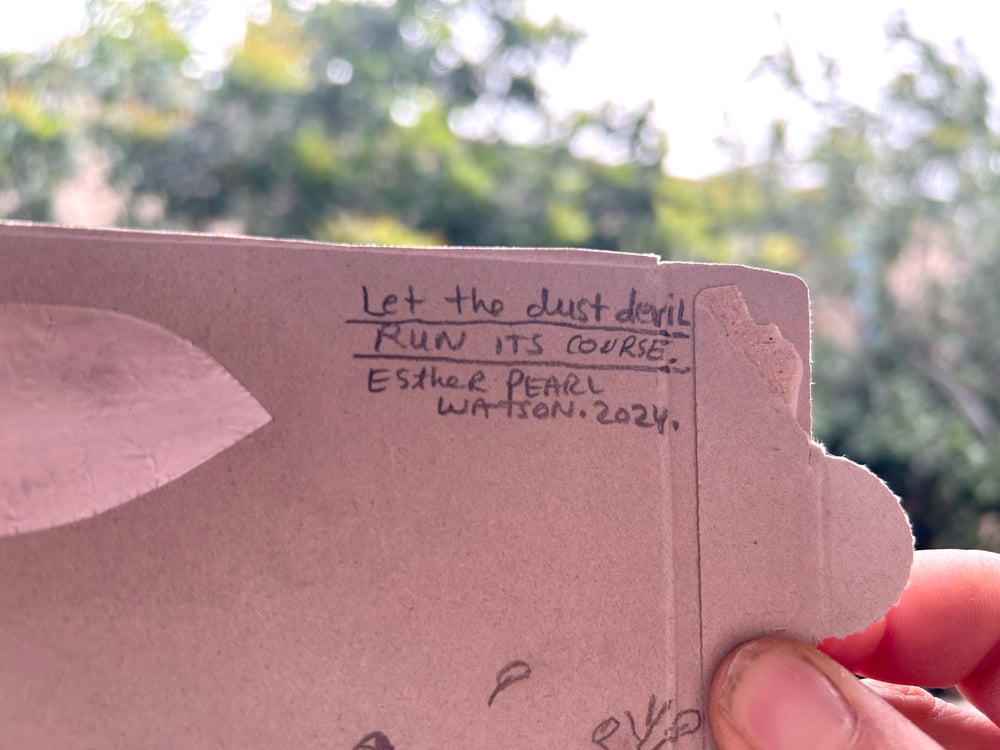 Let the dust devil
RUN ITS COURSE.
Esther PEARL
WATSON. 2024.